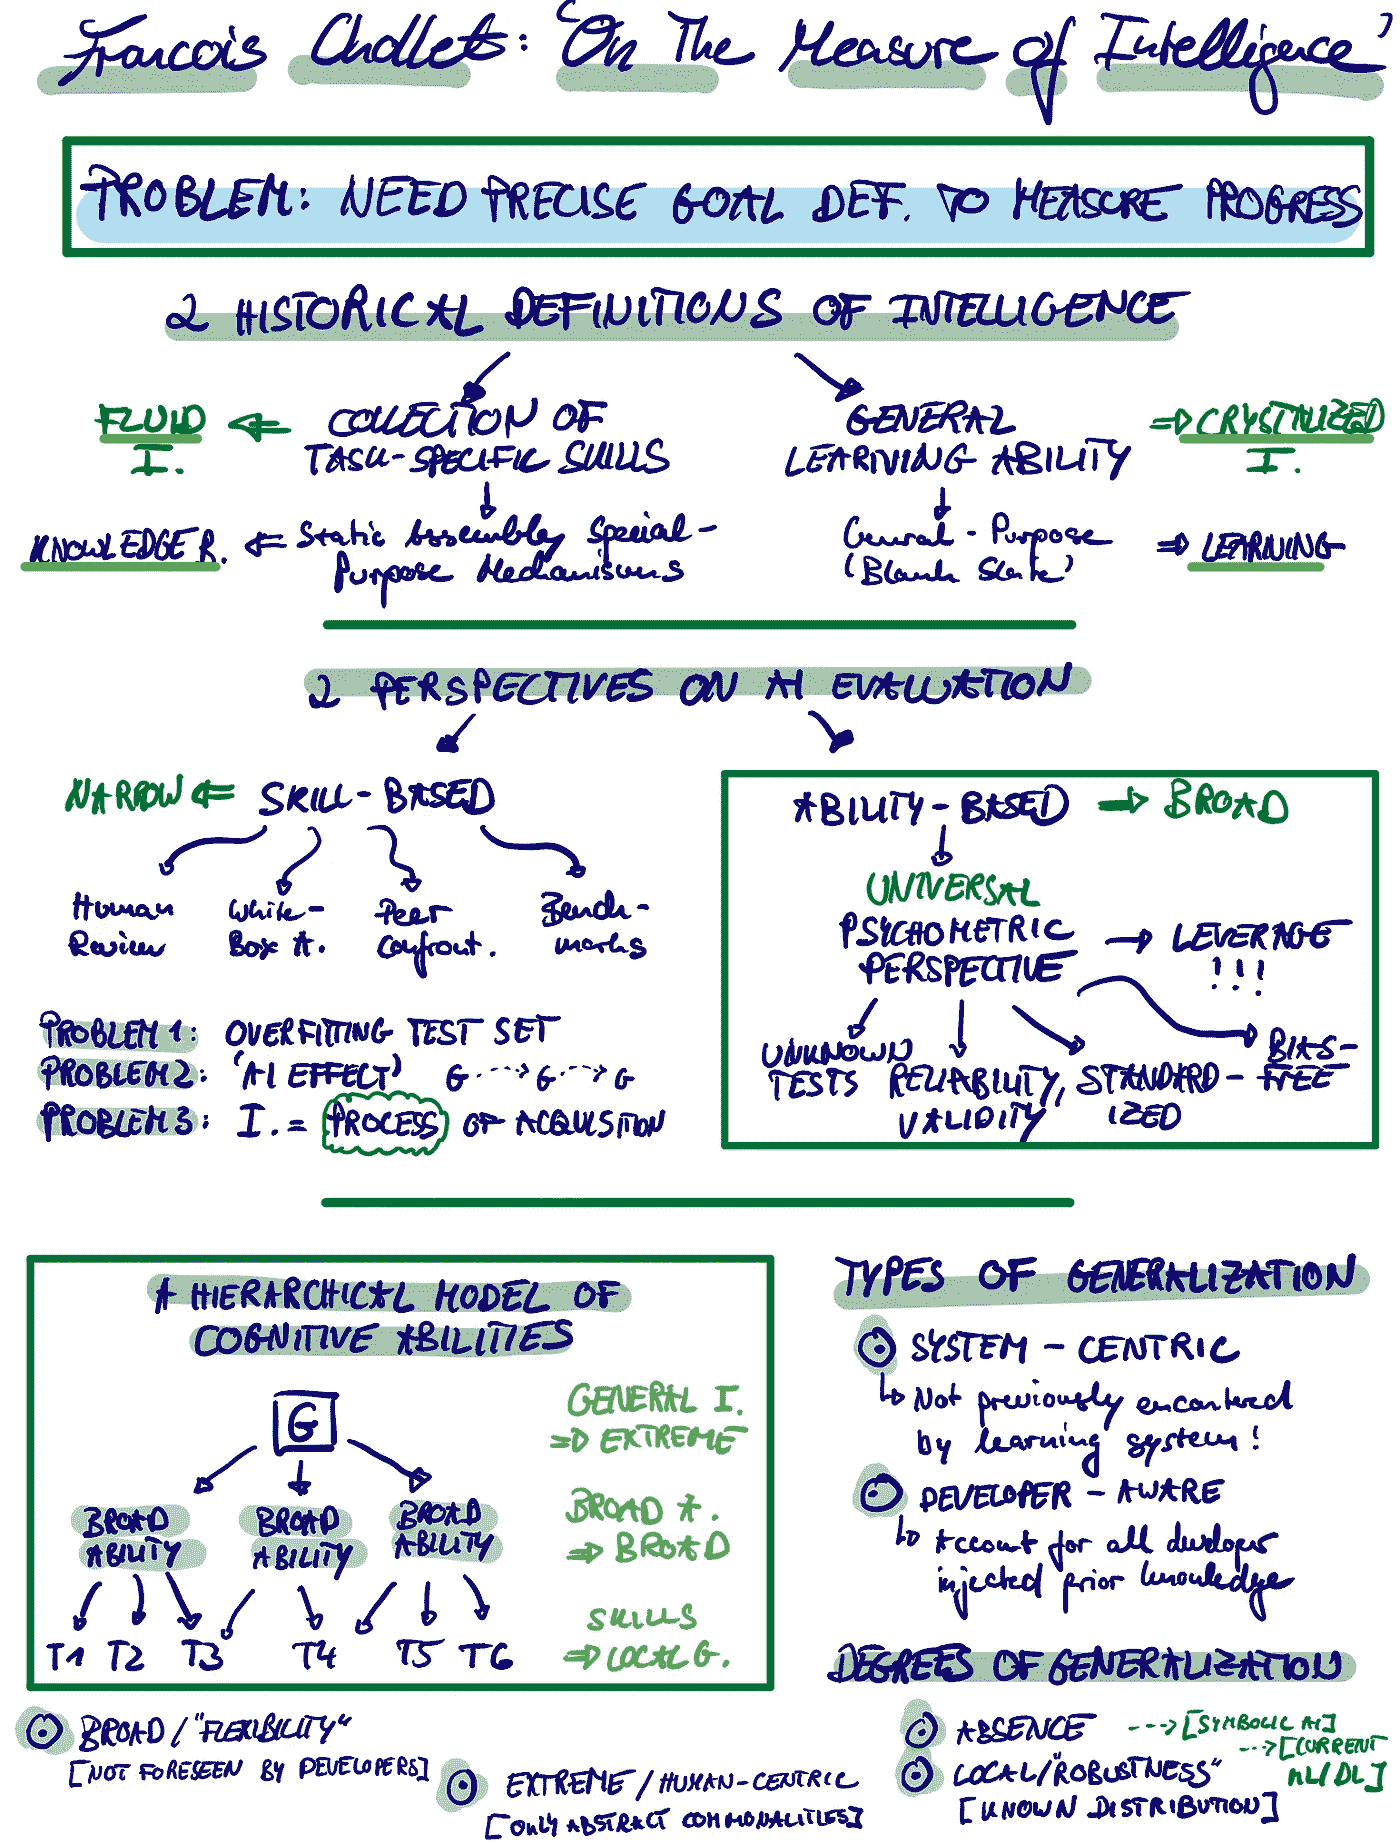 Francois Chollets: 'On The Measure of Intelligence'
PROBLEM: NEED PRECISE GOAL DEF. TO MEASURE PROGRESS
2 HISTORICAL DEFINITIONS OF INTELLIGENCE
FLUID
I.
COLLECTION OF
TASK-SPECIFIC SKILLS
GENERAL
LEARNING ABILITY
⇒ CRYSTALIZED
I.
KNOWLEDGE R.
Static Assembly Special-
Purpose Mechanisms
General-Purpose
('Blank Slate')
⇒ LEARNING
2 PERSPECTIVES ON AI EVALUATION
NARROW ⇐ SKILL-BASED
Human
Review
White-
Box A.
Peer
Confront.
Bench-
marks
PROBLEM 1: OVERFITTING TEST SET
PROBLEM 2: 'AI EFFECT' G ⇢ G ⇢ G
PROBLEM 3: I. = PROCESS OF ACQUISITION
ABILITY-BASED → BROAD
UNIVERSAL
PSYCHOMETRIC
PERSPECTIVE
→ LEVERAGE
!!!
UNKNOWN
TESTS
RELIABILITY,
VALIDITY
STANDARD-
IZED
BIAS-
FREE
A HIERARCHICAL MODEL OF
COGNITIVE ABILITIES
G
BROAD
ABILITY
BROAD
ABILITY
BROAD
ABILITY
T1 T2 T3 T4 T5 T6
GENERAL I.
⇒ EXTREME
BROAD A.
⇒ BROAD
SKILLS
⇒ LOCAL G.
TYPES OF GENERALIZATION
SYSTEM-CENTRIC
↳ Not previously encontered
by learning system!
DEVELOPER-AWARE
↳ Account for all developer
injected prior knowledge
DEGREES OF GENERALIZATION
ABSENCE ⇢ [SYMBOLIC AI]
LOCAL/"ROBUSTNESS" ⇢ [CURRENT
ML/DL]
[KNOWN DISTRIBUTION]
BROAD/"FLEXIBILITY"
[NOT FORESEEN BY DEVELOPERS]
EXTREME/HUMAN-CENTRIC
[ONLY ABSTRACT COMMONALITIES]